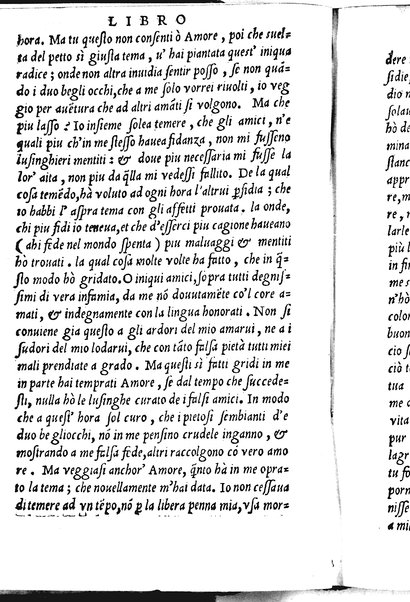 LIBRO
hora. Ma tu questo non consenti ò Amore, poi che suel-
ta del petto sì giusta tema, u' hai piantata quest' iniqua
radice; onde non altra inuidia sentir posso, se non quã-
do i duo begli occhi, che a me solo vorrei riuolti, io veg
gio per auẽtura che ad altri amãti si volgono. Ma che
piu lasso? Io insieme solea temere, che gli amici, n'e
quali piu ch'in me stesso hauea fidanza, non mi fusseno
lusinghieri mentiti: & doue piu necessaria mi fusse la
lor' aita, non piu da q̃lla mi vedessi fallito. De la qual
cosa temẽdo, hà voluto ad ogni hora l'altrui ꝑfidia; che
io habbi l'aspra tema con gli affetti prouata. la onde,
chi piu fidi io teneua, et che d'esserci piu cagione haueano
(ahi fede nel mondo spenta) piu maluaggi & mentiti
hò trouati. la qual cosa molte volte ha fatto, che in q̃-
sto modo hò gridato. O iniqui amici, sopra tutti degnis-
simi di vera infamia, da me nõ douutamẽte co'l core a-
mati, & indegnamente con la lingua honorati. Non si
conuiene gia questo a gli ardori del mio amarui, ne a i
sudori del mio lodarui, che con tãto falsa pietà tutti miei
mali prendiate a grado. Ma questi sì fatti gridi in me
in parte hai temprati Amore, se dal tempo che succede-
sti, nulla hò le lusinghe curato de i falsi amici. In modo
che a quest' hora sol curo, che i pietosi sembianti d'e
duo begliocchi, nó in me pensino crudele inganno, &
mostrando a me falsa fede, altri raccolgono cō vero amo
re. Ma veggiasi anchor' Amore, q̃nto hà in me opra-
to la tema; che nouellamente m'hai data. Io non cessaua
di temere ad vn tẽpo, nõ ꝑ la libera penna mia, vsa mor-